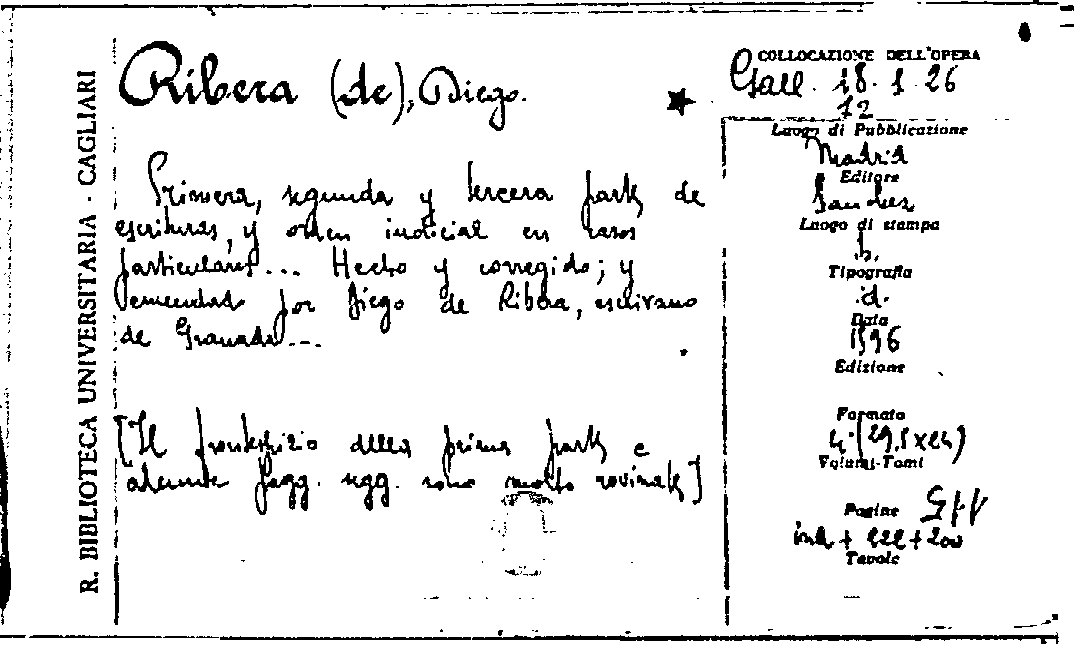 R. BIBLIOTECA UNIVERSITARIA - CAGLIARI
Ribera (de), Diego.
Primera, segunda y tercera parte de
escrituras, y orden iudicial en casos
particulares... Hecho y corregido; y
emendado por Diego de Ribera, escrivano
de Granada...
[Il frontespizio della prima parte e
alcune pagg. segg. sono molto rovinate]
COLLOCAZIONE DELL'OPERA
Gall. 18. 1. 26
12
Luogo di Pubblicazione
Madrid
Editore
Sanchez
Luogo di stampa
Tipografia
id.
Data
1596
Edizione
Formato
4° (29,5x24)
Volumi-Tomi
Pagine
+ 222 + 200
Tavole